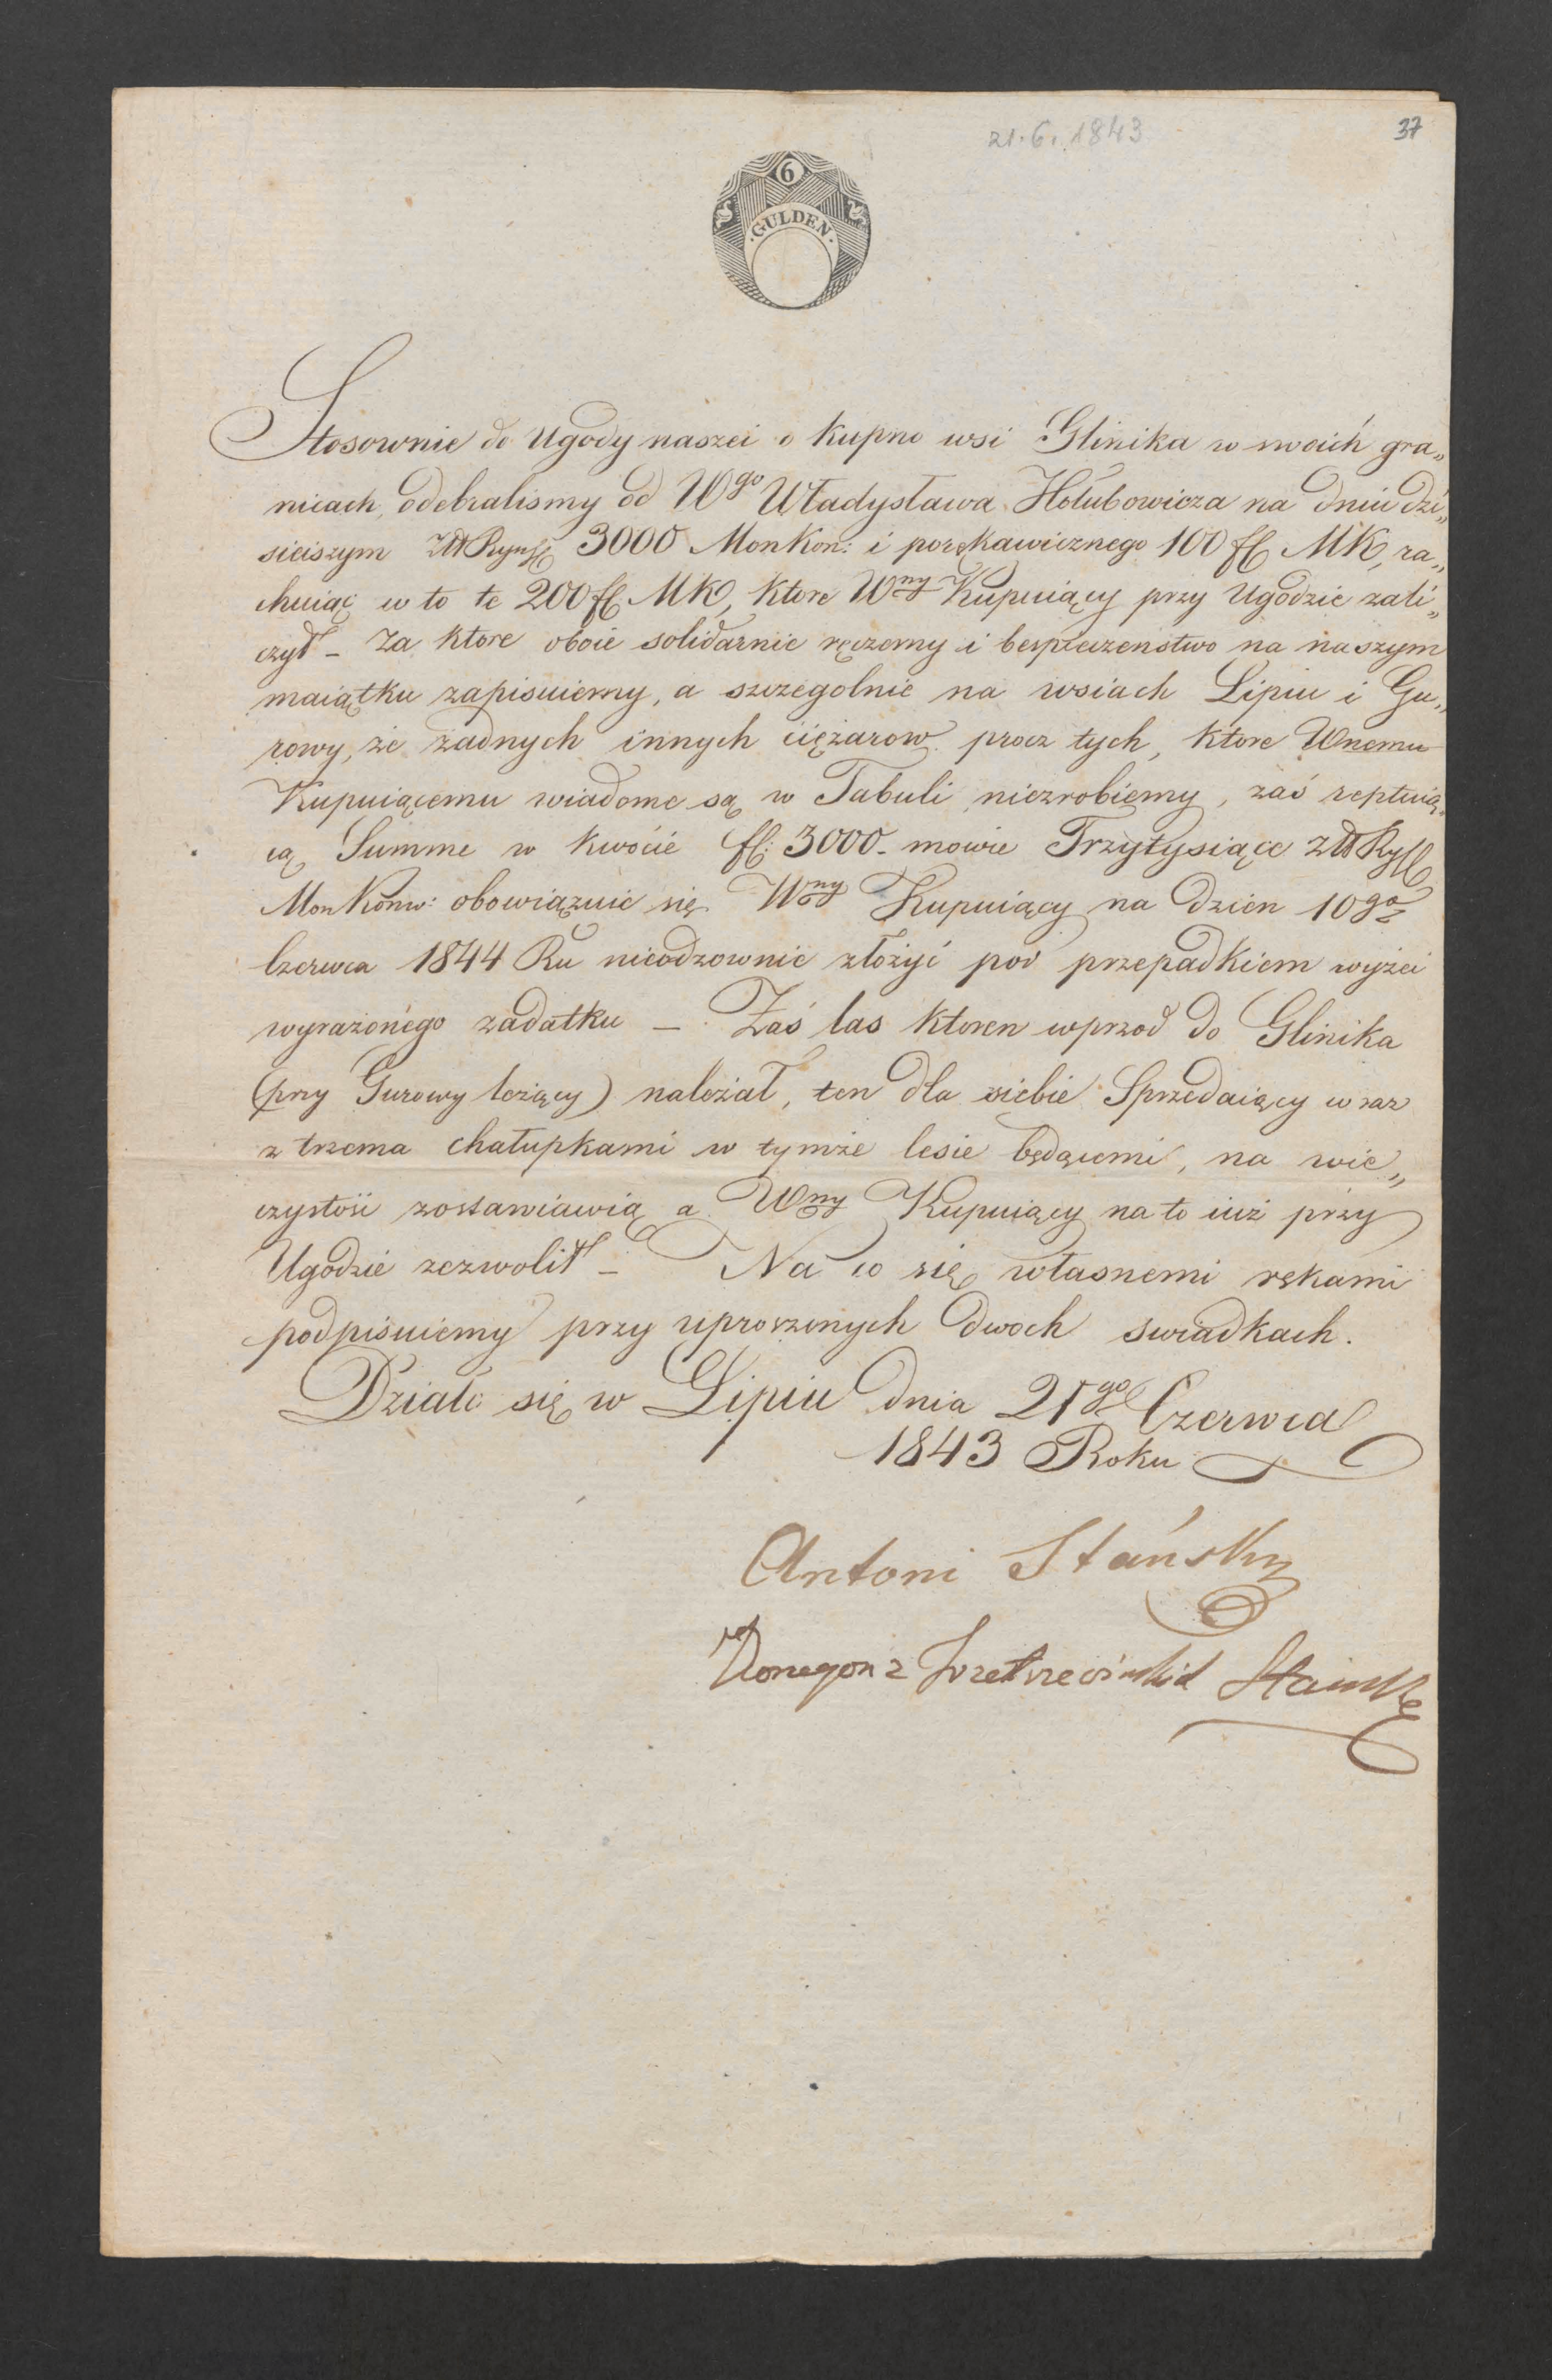 21.6.1843
37
6
GULDEN
Stosownie do Ugody naszei o kupno wsi Glinika w swoich gra„
nicach, odebralismy od Wgo Władysława Hołubowicza na dniu dzi„
sieiszym Mon Kon: 3000 i porękawicznego 100 fl MK, ra„
chuiąc w to te 200 fl. MK, ktore Wny Kupuiący przy Ugodzie zali„
czył – Za ktore oboie solidarnie ręczemy i bespieczenstwo na naszym
maiątku zapisuiemy, a szczegolnie na wsiach Lipiu i Gu„
rowy, że żadnych innych ciężarow procz tych, ktore Wnemu
Kupuiącemu wiadome są w Tabuli niezrobiemy, zaś
cą Summe w kwocie fl: 3000 – mowie Trzytysiące
Mon Konw: obowiązuie się Wny Kupuiący na dzien 10go
Czerwca 1844 Ru nieodzownie złożyć pod przepadkiem wyżei
wyrażonego zadatku – Zaś las ktoren wprzod do Glinika
(przy Gurowy leżący) należał, ten dla siebie Sprzedaiący wraz
z trzema chałupkami w tymże lesie będącemi, na wie„
czystość zostawiawią a Wny Kupuiący na to iuż przy
Ugodzie zezwolił – Na co się własnemi rękami
podpisuiemy przy uproszonych dwoch swiadkach.
Działo się w Lipiu dnia 21go Czerwca
1843 Roku
Antoni Stański
z